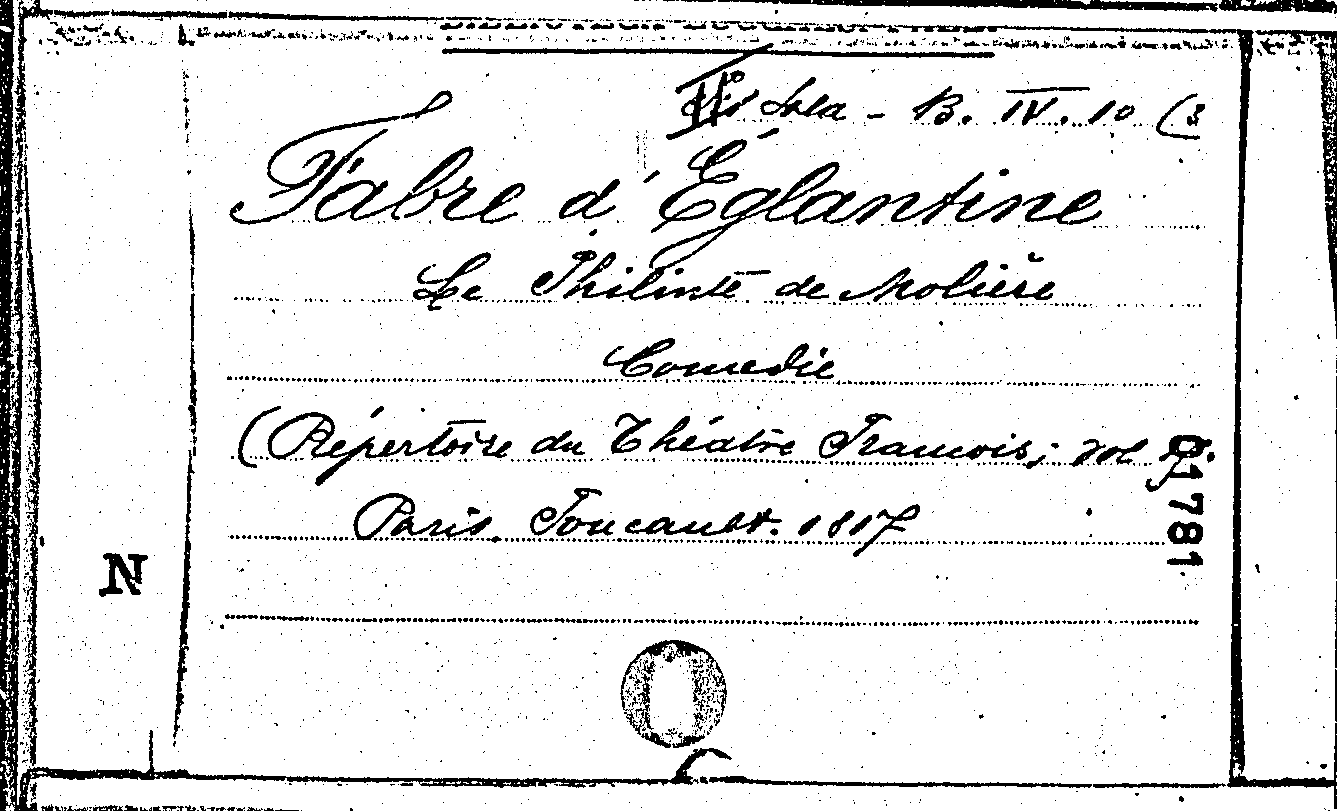 Sala - B. IV. 10 (3
Fabre d'Églantine
Le Philinte de Molière
Comedie
(Répertoire du Théatre Francois; vol
Paris. Foucault. 1817
01781
N